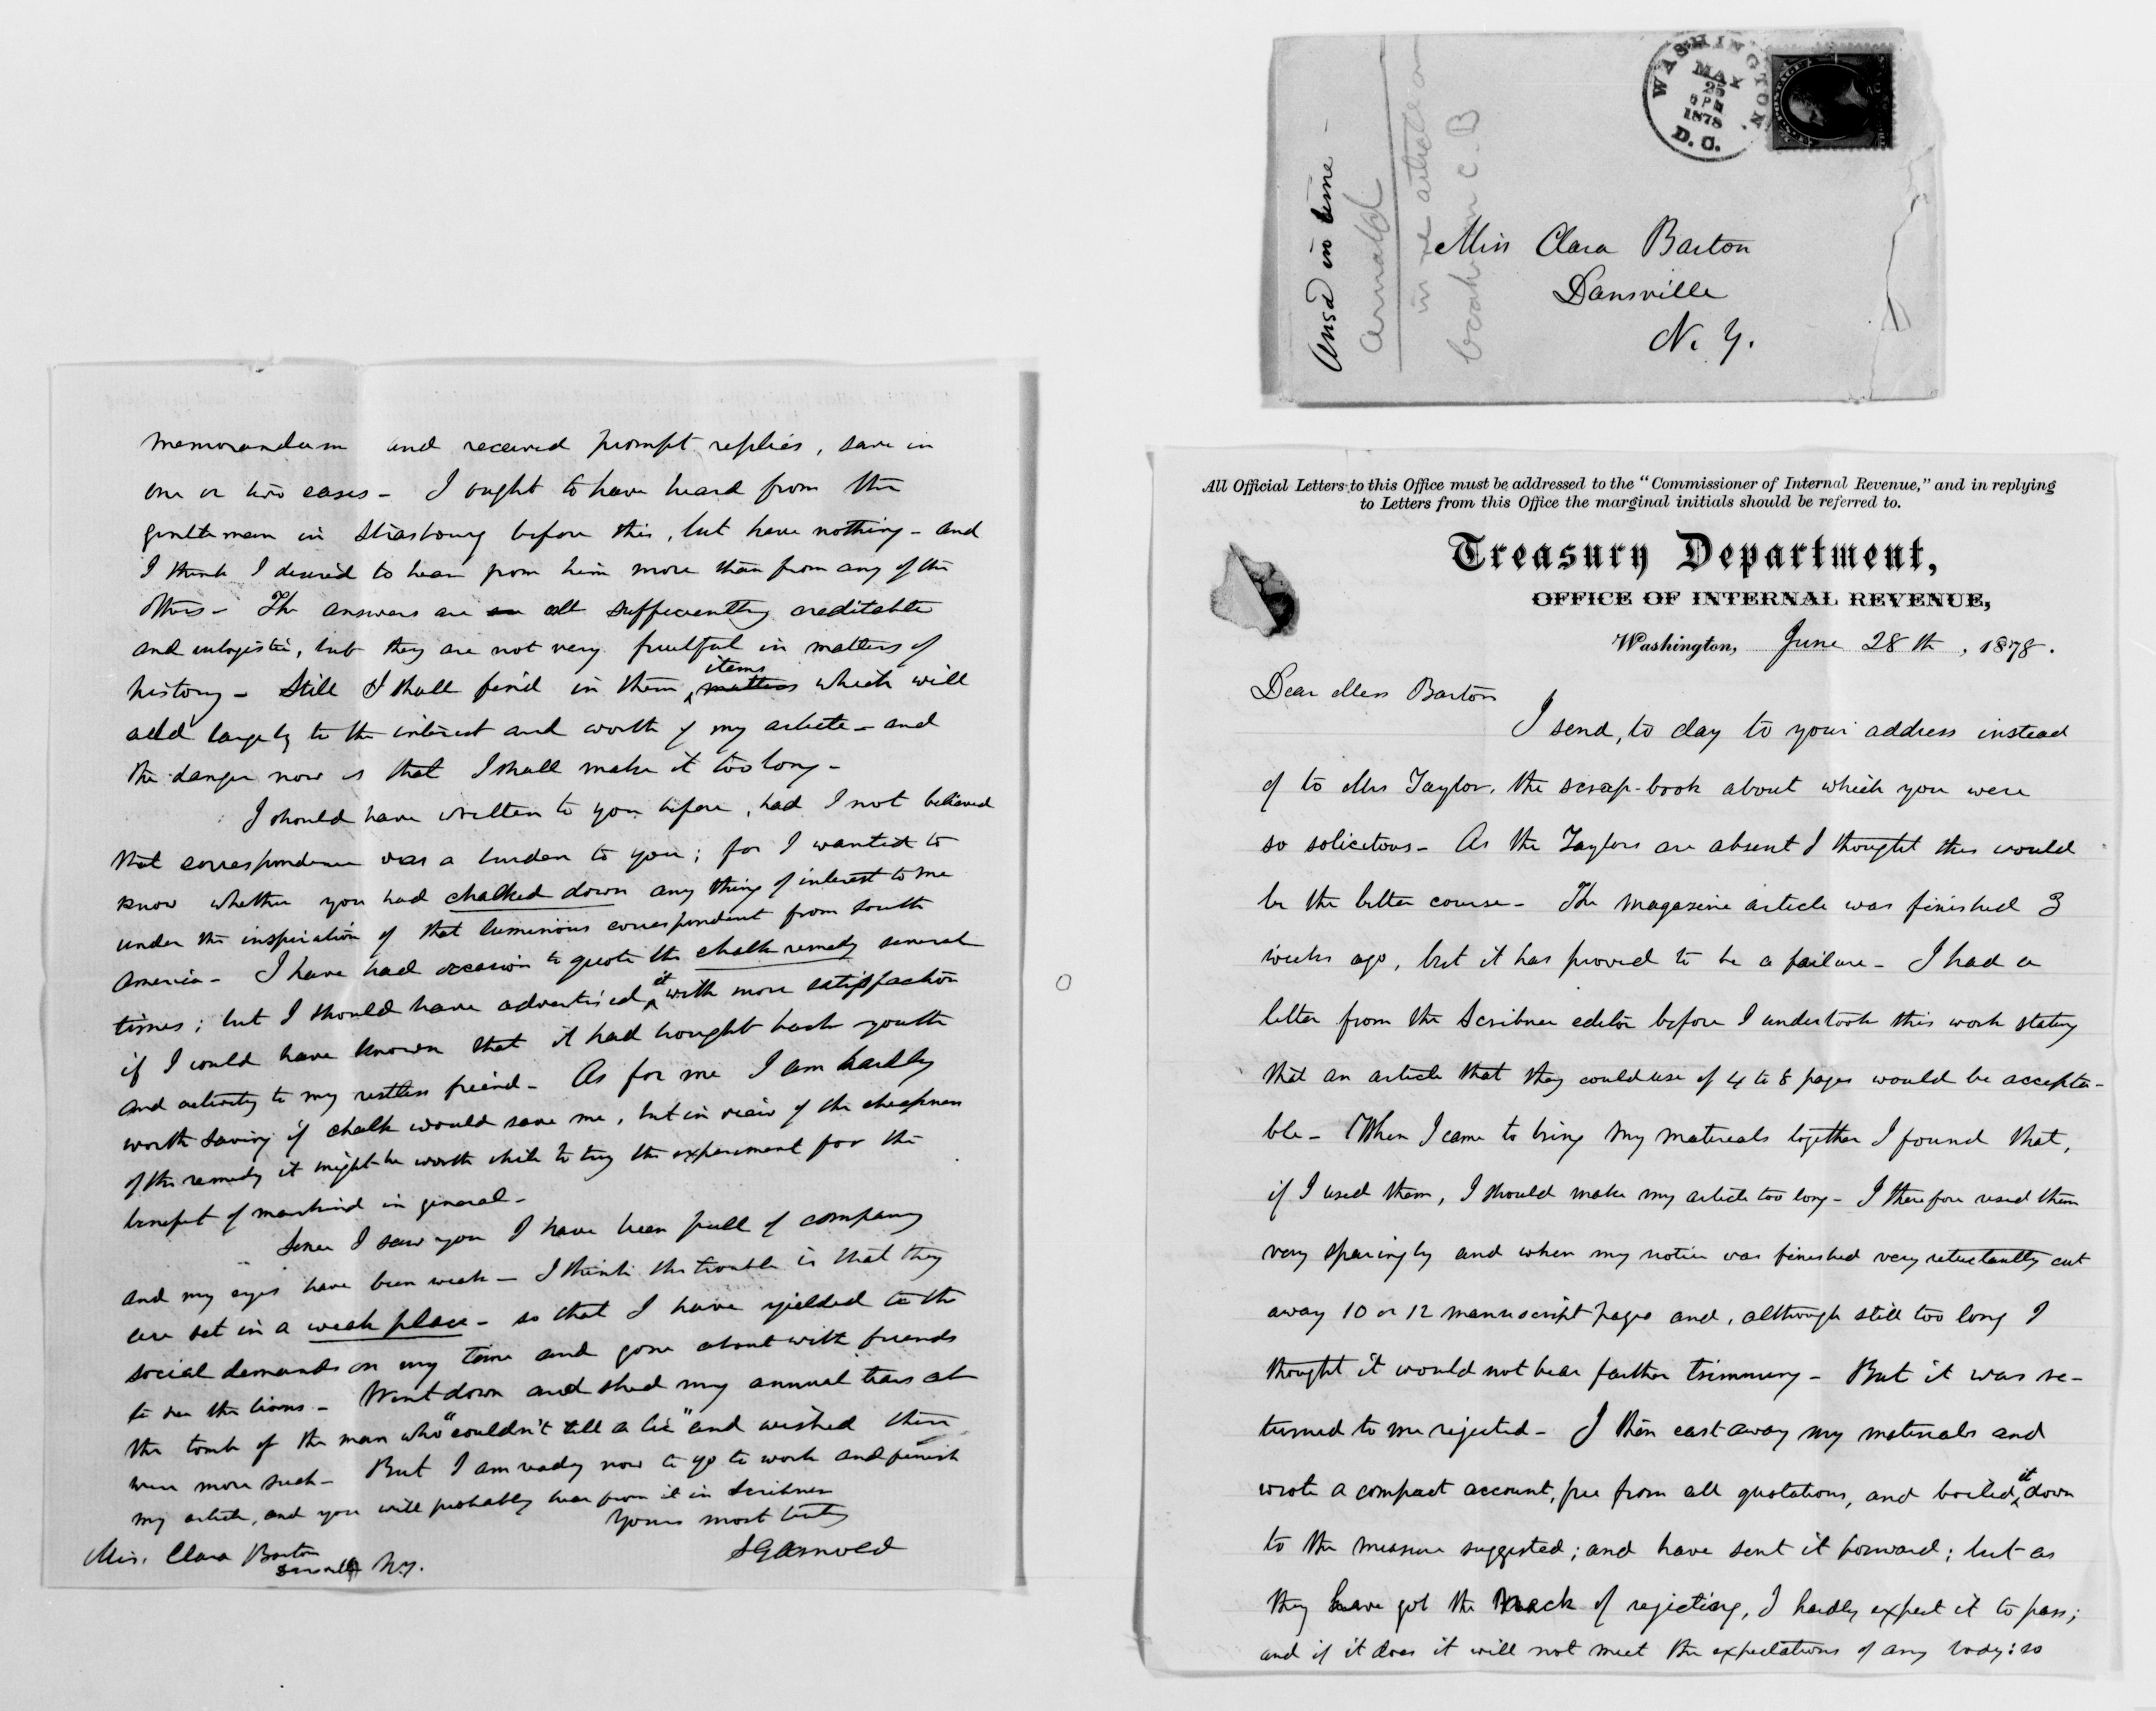 memorandum and received prompt replies, save in
one or two cases – I ought to have heard from the
gentleman in Strasbourg before this, but have nothing – and
I think I desired to hear from him more than from any of the
others – The answers are all sufficiently creditable
and eulogistic, but they are not very fruitful in matters of
history – Still I shall find in them items matters which will
add largely to the interest and worth of my article – and
the danger now is that I shall make it too long –
I should have written to you before, had I not believed
that correspondence was a burden to you; for I wanted to
know whether you had chalked down any thing of interest to me
under the inspiration of that luminous correspondent from South
America – I have had occasion to quote the chalk remedy several
times; but I should have advertised it with more satisfaction
if I could have known that it had brought back youth
and activity to my restless friend – As for me I am hardly
worth saving if chalk would save me, but in view of the cheapness
of the remedy it might be worth while to try the experiment for the
benefit of mankind in general –
Since I saw you I have been full of company
and my eyes have been weak – I think the trouble is that they
are set in a weak place – so that I have yielded to the
social demands on my time and gone about with friends
to see the lions – Went down and shed my annual tears at
the tomb of the man who "couldn't tell a lie" and wished there
were more such – But I am ready now to go to work and finish
my article, and you will probably hear from it in Scribner
Yours most truly
Miss. Clara Barton
N.Y.
WASHINGTON
MAY
25
6 PM
1878
D. C.
Ansd in time –
Arnold
in re article on
C. B
Miss Clara Barton
Dansville
N. Y.
All Official Letters to this Office must be addressed to the "Commissioner of Internal Revenue," and in replying
to Letters from this Office the marginal initials should be referred to.
Treasury Department,
OFFICE OF INTERNAL REVENUE,
Washington, June 28th, 1878.
Dear Miss Barton
I send, to day to your address instead
of to Mrs Taylor, the scrap-book about which you were
so solicitous – As the Taylors are absent I thought this would
be the better course – The magazine article was finished 3
weeks ago, but it has proved to be a failure – I had a
letter from the Scribner editor before I undertook this work stating
that an article that they could use of 4 to 8 pages would be accepta-
ble – When I came to bring my materials together I found that,
if I used them, I should make my article too long – I therefore used them
very sparingly and when my notice was finished very reluctantly cut
away 10 or 12 manuscript pages and, although still too long I
thought it would not bear farther trimming – But it was re-
turned to me rejected – I then cast away my materials and
wrote a compact account, free from all quotations, and boiled it down
to the measure suggested; and have sent it forward; but as
they have got the knack of rejecting, I hardly expect it to pass;
and if it does it will not meet the expectations of any body: so